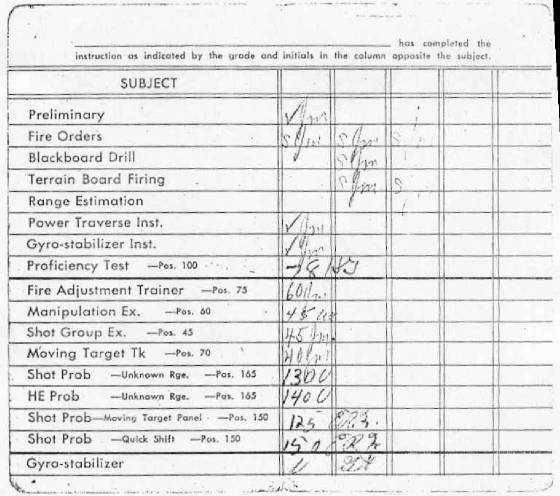 has completed the
instruction as indicated by the grade and initials in the column opposite the subject.
SUBJECT
Preliminary ✓ Jm
Fire Orders S Jm S Jm S
Blackboard Drill S Jm
Terrain Board Firing S Jm S
Range Estimation
Power Traverse Inst. ✓ Jm
Gyro-stabilizer Inst. ✓ Jm
Proficiency Test —Pos. 100
Fire Adjustment Trainer - Pos. 75 60 Jm
Manipulation Ex. —Pos. 60 45
Shot Group Ex. —Pos. 45 45 Jm
Moving Target Tk —Pos. 70 40
Shot Prob —Unknown Rge. —Pos. 165 130
HE Prob —Unknown Rge. —Pos. 165 140
Shot Prob—Moving Target Panel - —Pos. 150 125
Shot Prob —Quick Shift - Pos. 150 150
Gyro-stabilizer